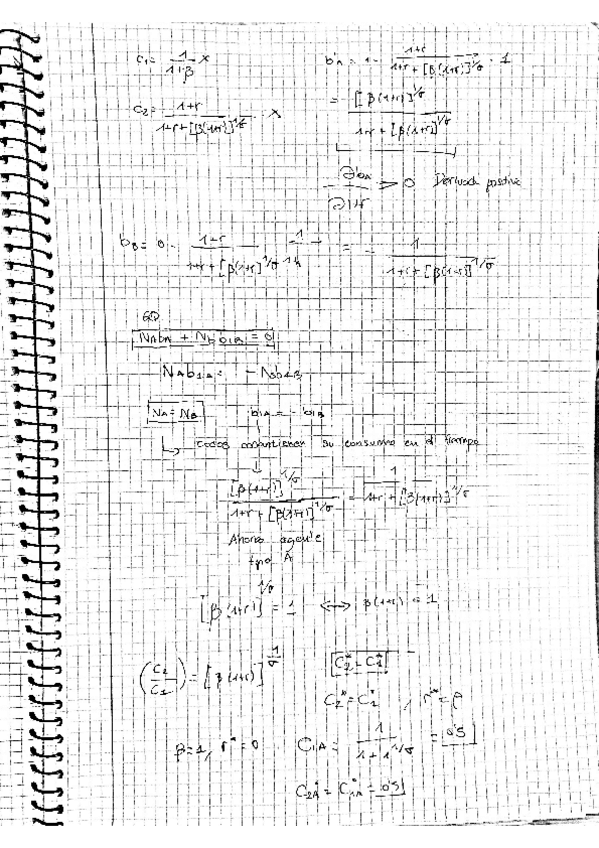 C₁ = 1/(1+β) x
b_A = 1 - (1+r)/(1+r+[β(1+r)]^1/σ) · 1
C₂ = (1+r)/(1+r+[β(1+r)]^1/σ) · x
= [β(1+r)]^1/σ / (1+r+[β(1+r)]^1/σ)
∂b_A/∂1+r > 0 Derivada positiva
b_B = 0 - (1+r)/(1+r+[β(1+r)]^1/σ) = - 1/(1+r+[β(1+r)]^1/σ)
EQ
N_A b_1A + N_b b_1B = 0
N_A b_1A = - N_b b_1B
N_A = N_B b_1A = - b_1B
↳ todos mantienen su consumo en el tiempo
[β(1+r)]^1/σ / (1+r+[β(1+r)]^1/σ) = 1/(1+r+[β(1+r)]^1/σ)
Ahorro agente
tipo A
[β(1+r)]^1/σ = 1 ⟷ β(1+r) = 1
(C₂/C₁) = [β(1+r)]^1/σ
C₂* = C₁*
C₂* = C₁* , r* = ρ
β = 1, r* = 0 C_1A = 1/(1+1^1/σ) = 0'5
C_2A* = C_1A* = 0'5